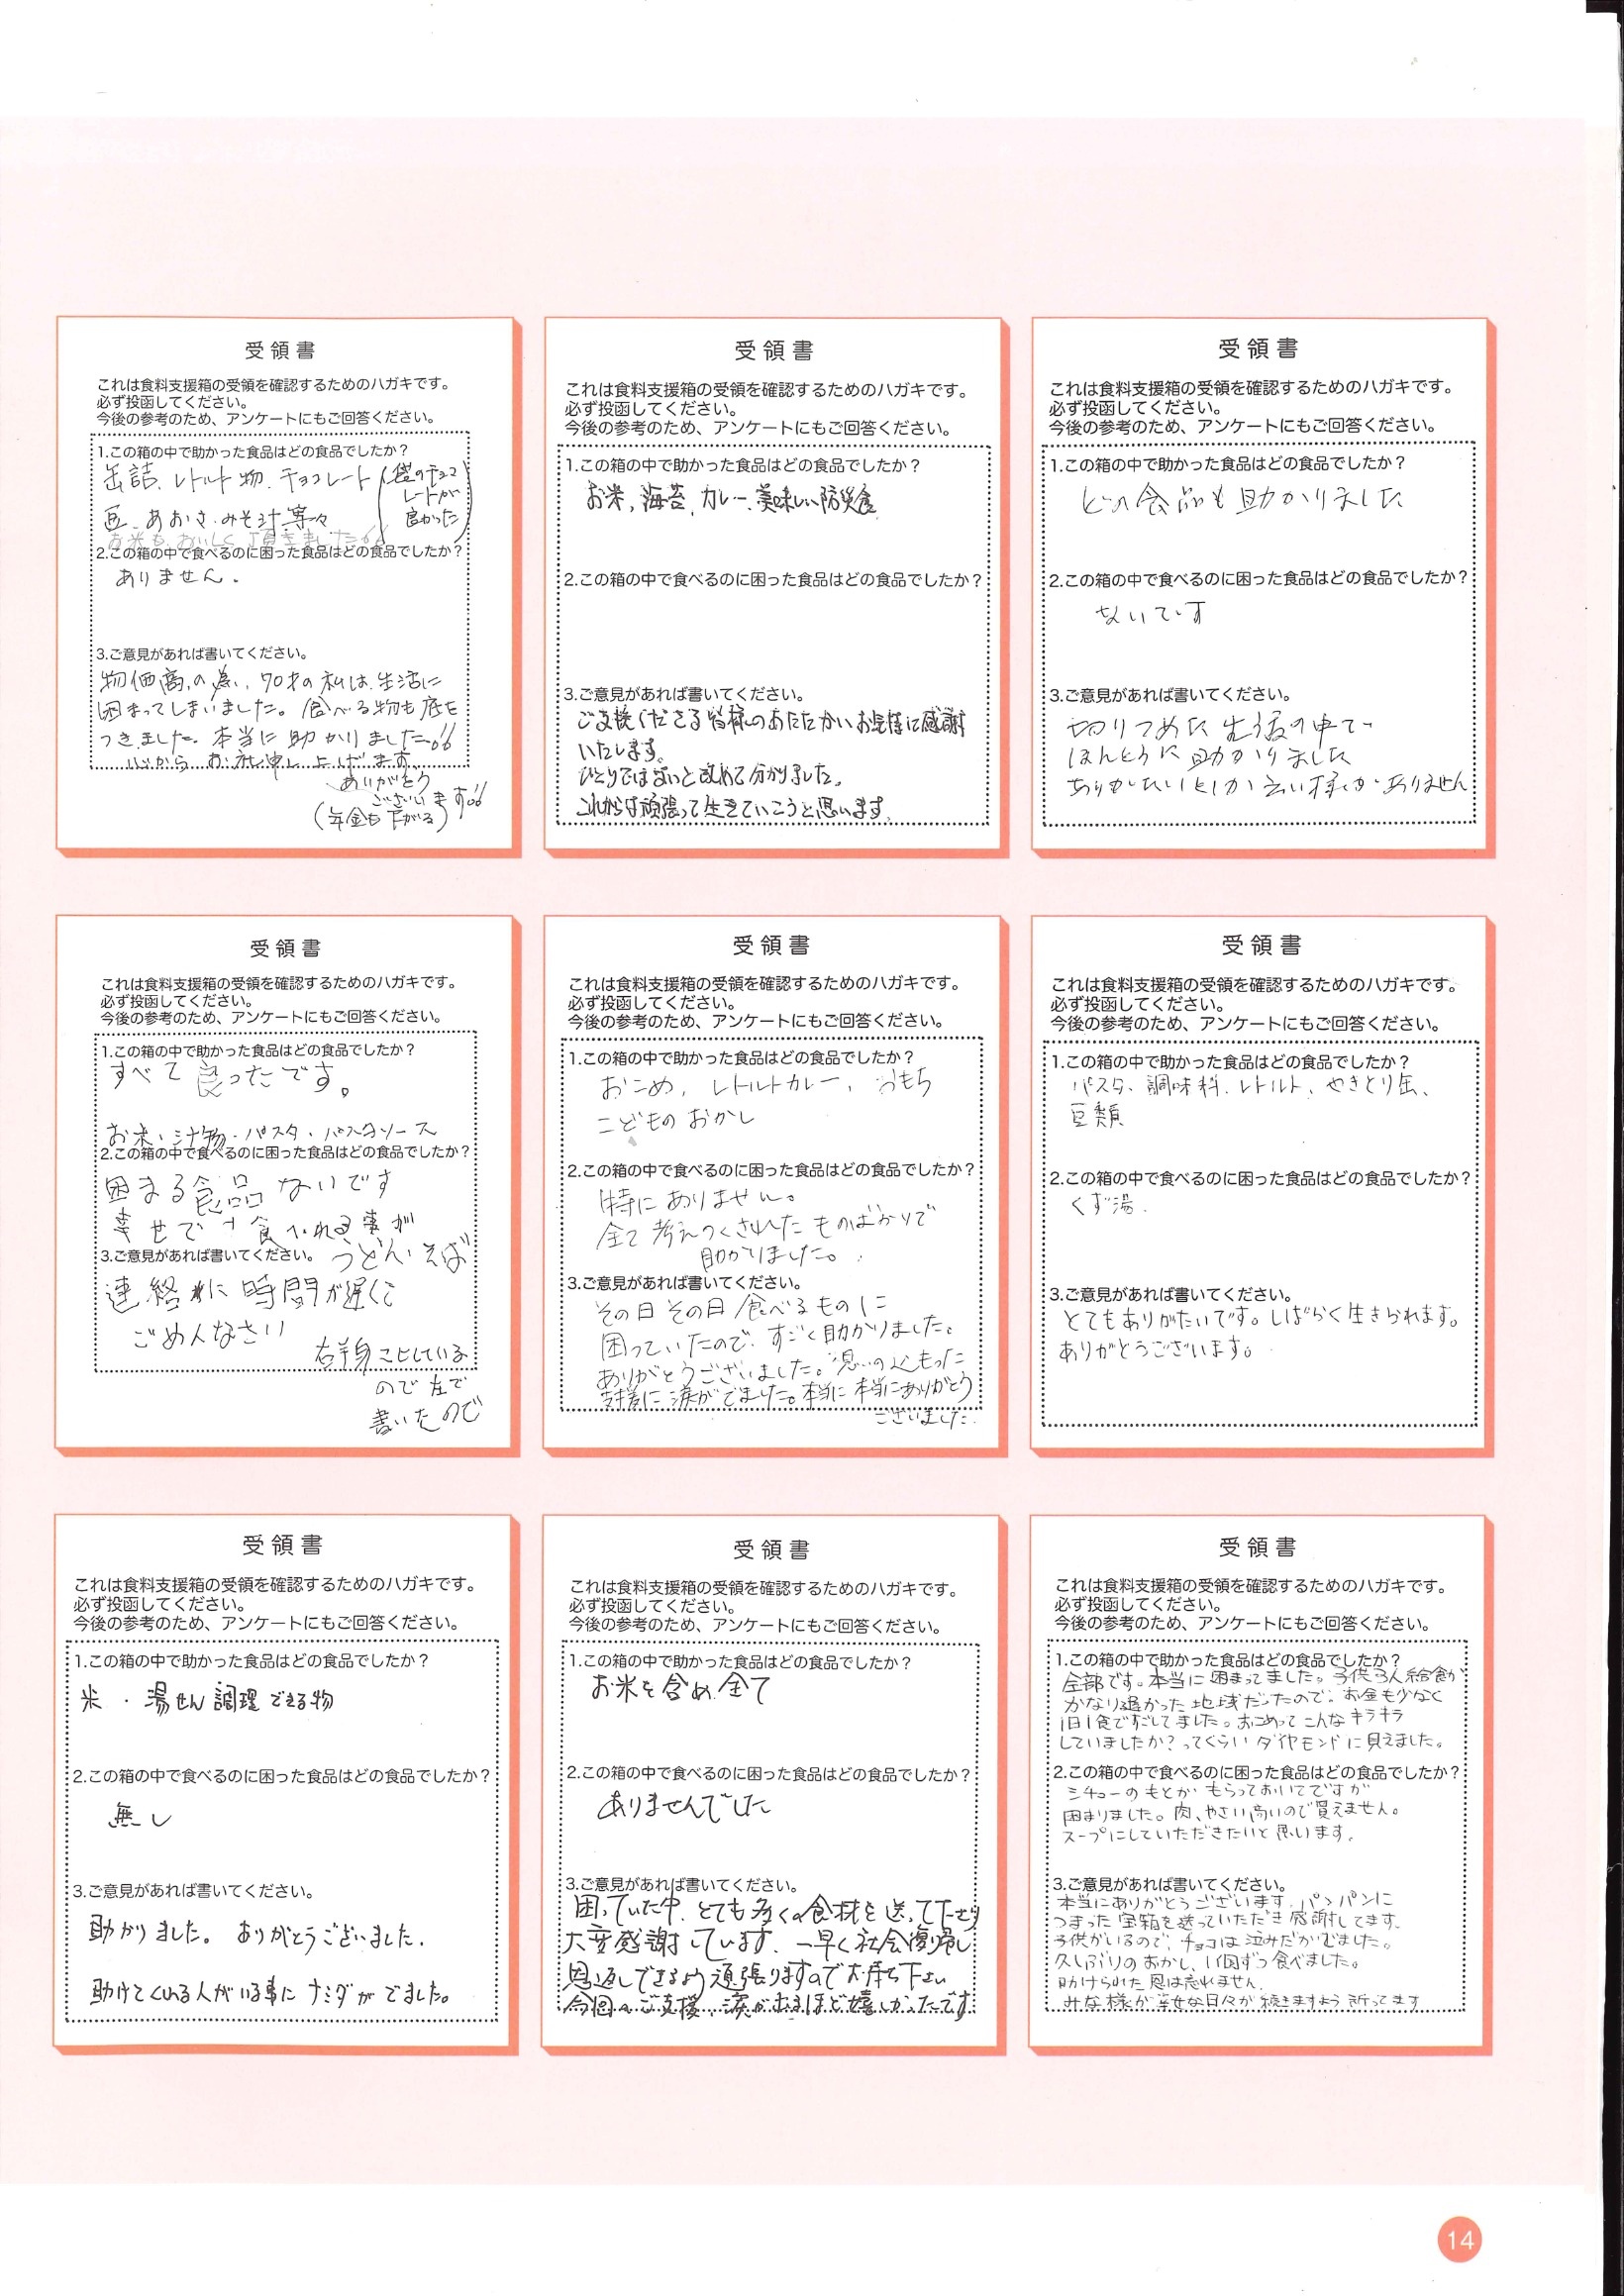 受領書
これは食料支援箱の受領を確認するためのハガキです。
必ず投函してください。
今後の参考のため、アンケートにもご回答ください。
1.この箱の中で助かった食品はどの食品でしたか？
缶詰、レトルト物、チョコレート(袋のチョコ
レートが
良かった)
あおさ、みそ汁等々
お米もおいしく頂きました
2.この箱の中で食べるのに困った食品はどの食品でしたか？
ありません。
3.ご意見があれば書いてください。
物価高の為、70才の私は生活に
困まってしまいました。食べる物も底を
つきました。本当に助かりました
心からお礼申し上げます
ありがとう
ございます
(年金も下がる)
受領書
これは食料支援箱の受領を確認するためのハガキです。
必ず投函してください。
今後の参考のため、アンケートにもご回答ください。
1.この箱の中で助かった食品はどの食品でしたか？
お米、海苔、カレー、美味しい防災食
2.この箱の中で食べるのに困った食品はどの食品でしたか？
3.ご意見があれば書いてください。
ご支援くださる皆様のあたたかいお気持に感謝
いたします。
ひとりではないと改めて分かりました。
これからは頑張って生きていこうと思います。
受領書
これは食料支援箱の受領を確認するためのハガキです。
必ず投函してください。
今後の参考のため、アンケートにもご回答ください。
1.この箱の中で助かった食品はどの食品でしたか？
どの食品も助かりました
2.この箱の中で食べるのに困った食品はどの食品でしたか？
ないです
3.ご意見があれば書いてください。
切りつめた生活の中で
ほんとうに助かりました
ありがたいとしか言い様がありません
受領書
これは食料支援箱の受領を確認するためのハガキです。
必ず投函してください。
今後の参考のため、アンケートにもご回答ください。
1.この箱の中で助かった食品はどの食品でしたか？
すべて良ったです。
お米・汁物・パスタ・パスタソース
2.この箱の中で食べるのに困った食品はどの食品でしたか？
困まる食品ないです
幸せです食べれる事が
3.ご意見があれば書いてください。 うどん そば
連絡 時間が遅くて
ごめんなさい
右半身こしている
ので左で
書いたので
受領書
これは食料支援箱の受領を確認するためのハガキです。
必ず投函してください。
今後の参考のため、アンケートにもご回答ください。
1.この箱の中で助かった食品はどの食品でしたか？
おこめ、レトルトカレー、おもち
こどものおかし
2.この箱の中で食べるのに困った食品はどの食品でしたか？
特にありません。
全て考えつくされたものばかりで
助かりました。
3.ご意見があれば書いてください。
その日その日食べるものに
困っていたので、すごく助かりました。
ありがとうございました。思いの心もった
支援に涙がでました。本当に本当にありがとう
ございました。
受領書
これは食料支援箱の受領を確認するためのハガキです。
必ず投函してください。
今後の参考のため、アンケートにもご回答ください。
1.この箱の中で助かった食品はどの食品でしたか？
パスタ、調味料、レトルト、やきとり缶、
豆類
2.この箱の中で食べるのに困った食品はどの食品でしたか？
くず湯.
3.ご意見があれば書いてください。
とてもありがたいです。しばらく生きられます。
ありがとうございます。
受領書
これは食料支援箱の受領を確認するためのハガキです。
必ず投函してください。
今後の参考のため、アンケートにもご回答ください。
1.この箱の中で助かった食品はどの食品でしたか？
米・湯せん調理できる物
2.この箱の中で食べるのに困った食品はどの食品でしたか？
無し
3.ご意見があれば書いてください。
助かりました。ありがとうございました.
助けてくれる人がいる事にナミダがでました。
受領書
これは食料支援箱の受領を確認するためのハガキです。
必ず投函してください。
今後の参考のため、アンケートにもご回答ください。
1.この箱の中で助かった食品はどの食品でしたか？
お米を含め全て
2.この箱の中で食べるのに困った食品はどの食品でしたか？
ありませんでした
3.ご意見があれば書いてください。
困っていた中、とても多くの食材を送って下さり
大変感謝しています。一早く社会復帰し
恩返しできるよう頑張りますのでお待ち下さい
今回のご支援、涙が出るほど嬉しかったです
受領書
これは食料支援箱の受領を確認するためのハガキです。
必ず投函してください。
今後の参考のため、アンケートにもご回答ください。
1.この箱の中で助かった食品はどの食品でしたか？
全部です。本当に困まってました。子供3人給食が
かなり遅かった地域だったので、お金も少なく
1日1食ですごしてました。おこめってこんなキラキラ
していましたか？ってくらいダイヤモンドに見えました。
2.この箱の中で食べるのに困った食品はどの食品でしたか？
シチューのもとか もらっておいてですが
困まりました。肉、やさい高いので買えません。
スープにしていただきたいと思います。
3.ご意見があれば書いてください。
本当にありがとうございます。パンパンに
つまった宝箱を送っていただき感謝してます。
子供がいるので、チョコは泣みだかでました。
久しぶりのおかし、1個ずつ食べました。
助けられた恩は忘れません.
みな様が幸せな日々が続きますよう祈ってます
14